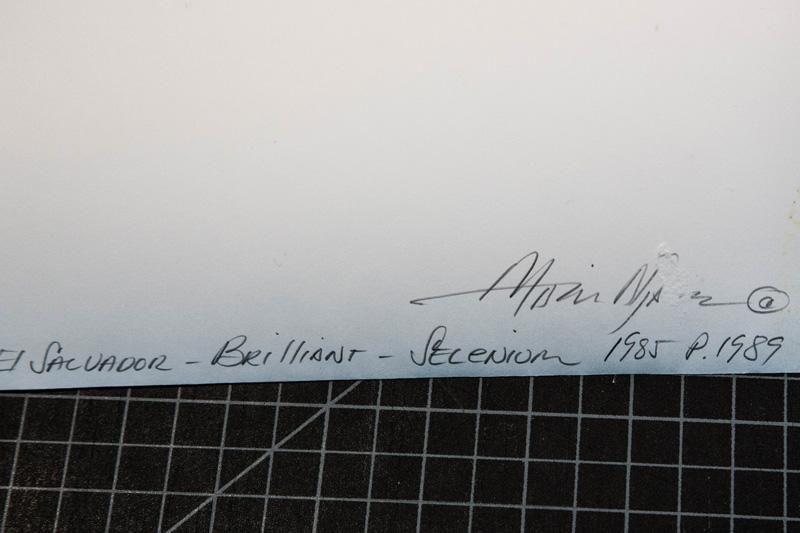 ©
El SALVADOR - Brilliant - SELENIUM 1985 P.1989